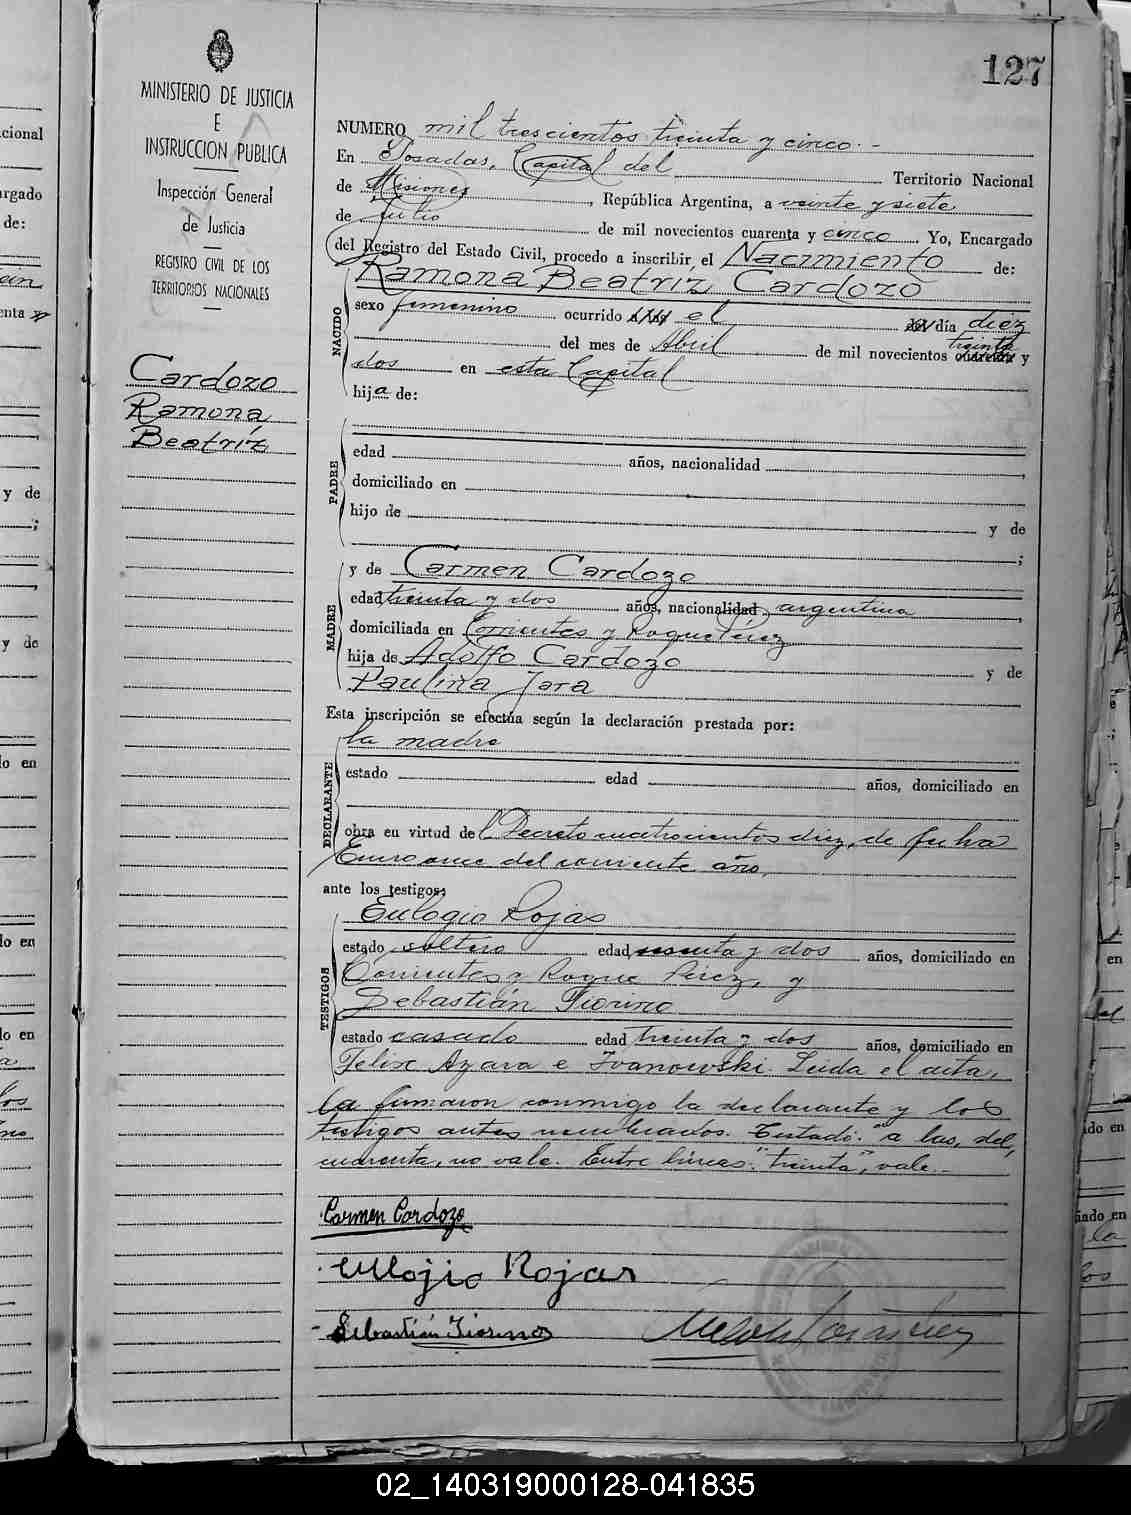 127
MINISTERIO DE JUSTICIA
E
INSTRUCCION PUBLICA
Inspección General
de Justicia
REGISTRO CIVIL DE LOS
TERRITORIOS NACIONALES
Cardozo
Ramona
Beatríz
NUMERO mil trescientos treinta y cinco.-
En Posadas, Capital del Territorio Nacional
de Misiones, República Argentina, a veinte y siete
de Julio de mil novecientos cuarenta y cinco. Yo, Encargado
del Registro del Estado Civil, procedo a inscribir el Nacimiento de:
NACIDO
Ramona Beatríz Cardozo
sexo femenino ocurrido el día diez
treinta
del mes de Abril de mil novecientos cuarenta y
dos en esta Capital
hija de:
PADRE
edad años, nacionalidad ,
domiciliado en
hijo de y de
;
MADRE
y de Carmen Cardozo
edad treinta y dos años, nacionalidad argentina,
domiciliada en Corrientes y Roque Pérez
hija de Adolfo Cardozo y de
Paulina Jara
Esta inscripción se efectúa según la declaración prestada por:
DECLARANTE
la madre
estado edad años, domiciliado en
obra en virtud del Decreto cuatrocientos diez, de fecha
Enero once del corriente año,
ante los testigos:
TESTIGOS
Eulogio Rojas
estado soltero edad y dos años, domiciliado en
Corrientes y Roque Pérez, y
Sebastián Fiorino
estado casado edad treinta y dos años, domiciliado en
Felix Azara e Ivanowski. Leida el acta,
la firmaron conmigo la declarante y los
testigos antes nombrados. Testado: "a las, del,
cuarenta, no vale. Entre líneas: "treinta", vale.-
Carmen Cardozo
Eulojio Rojas
Sebastián Fiorino
02_140319000128-041835